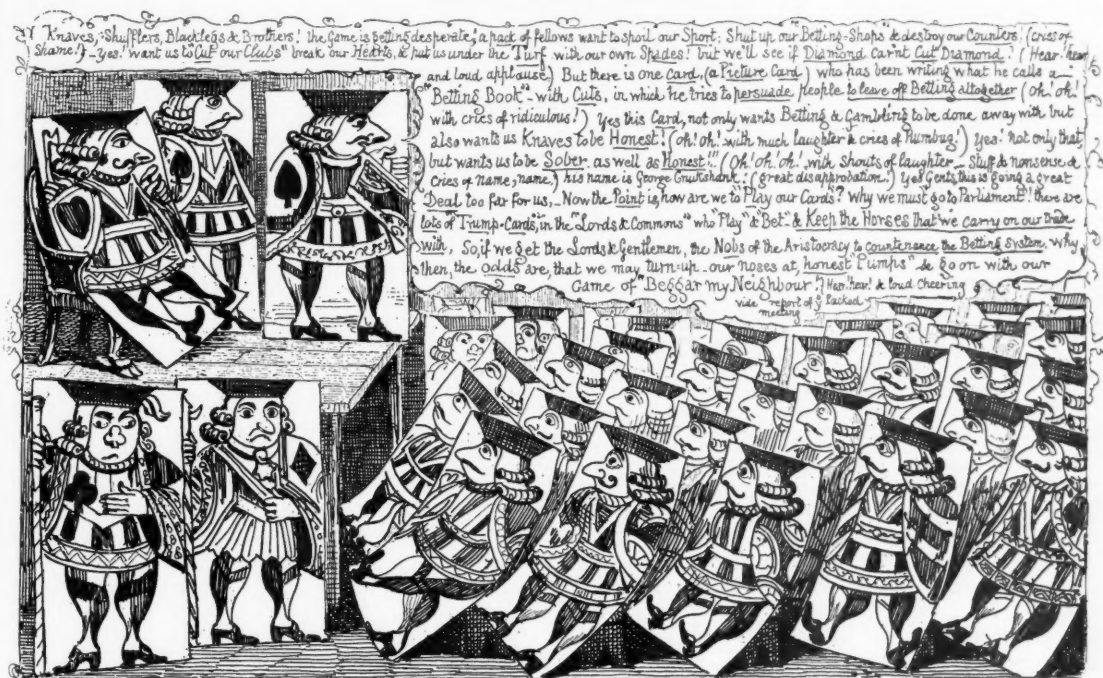 Knaves,-Shufflers, Blacklegs & Brothers! the Game is getting desperate, a pack of fellows want to spoil our Sport; Shut up our "Betting-Shops" & destroy our Counters. (cries of
Shame!) - Yes! want us to "Cut our Clubs" break our Hearts, & put us under the Turf with our own Spades! but we'll see if Diamond can't Cut Diamond! (Hear! hear
and loud applause) But there is one Card, (a Picture Card) who has been writing what he calls a
"Betting Book" - with Cuts, in which he tries to persuade People to leave off Betting altogether (oh! oh!
with cries of ridiculous!) Yes this Card, not only wants Betting & Gambling to be done away with but
also wants us Knaves to be Honest! (oh! oh! with much laughter & cries of Humbug!) Yea! not only that
but wants us to be Sober as well as Honest!!! (Oh! oh! oh! with shouts of laughter - Stuff & nonsense &
Cries of name, name,) his name is George Cruikshank! (great disapprobation!) Yes Gents, this is going a great
Deal too far for us, - Now the Point is, how are we to "Play our Cards"? Why we must go to Parliament! there are
lots of "Trump-Cards", in the "Lords & Commons" who "Play" & "Bet" & Keep the Horses that we carry on our trade
with. So, if we get the Lords & Gentlemen, the Nobs of the Aristocracy to countenance the Betting System, why
then, the odds are, that we may turn-up our noses at, honest "Pumps" & go on with our
Game of "Beggar my Neighbour"! Hear. hear! & loud Cheering
vide report of ye Packed
meeting